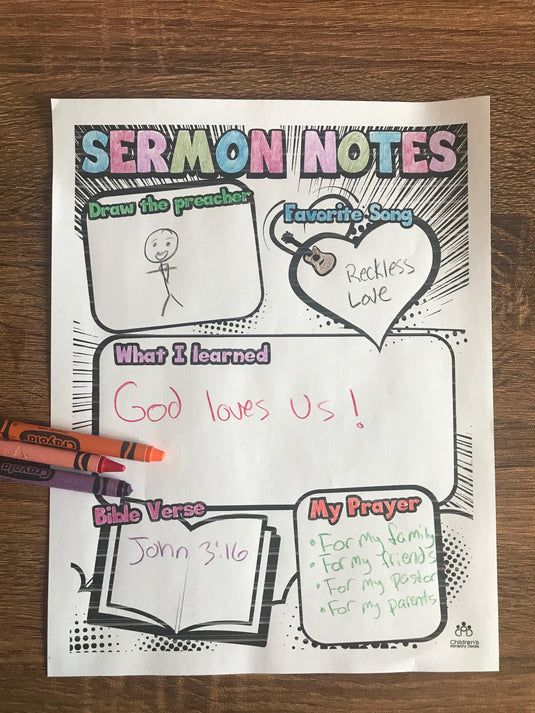 SERMON NOTES
Draw the preacher
Favorite Song
Reckless
Love
What I learned
God loves Us!
Crayola
Crayola
Bible Verse
John 3:16
My Prayer
• For my family
• For my friends
• For my pastor
• For my parents
Children's
Ministry Deals